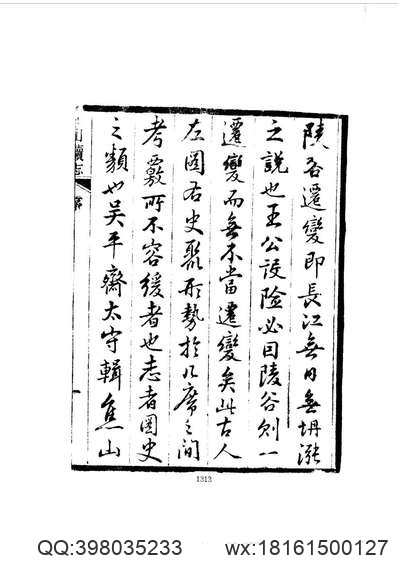 陵谷遷變即長江無日無坍漲
之說也王公設險必因陵谷則一
遷變而無不當遷變矣此古人
左圖右史聚形勢於几席之間
考覈所不容緩者也志者圖史
之類也吳平齋太守輯焦山
續志
序
1313
QQ:398035233 wx:18161500127